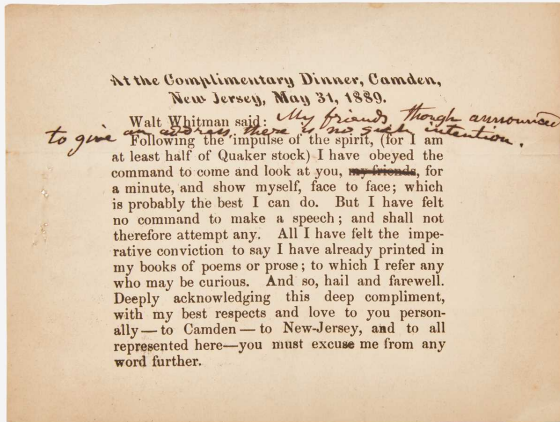 At the Complimentary Dinner, Camden,
New Jersey, May 31, 1889.
Walt Whitman said: My friends, though announced
to give an address, there is no such intention.
Following the impulse of the spirit, (for I am
at least half of Quaker stock) I have obeyed the
command to come and look at you, my friends, for
a minute, and show myself, face to face; which
is probably the best I can do. But I have felt
no command to make a speech; and shall not
therefore attempt any. All I have felt the impe-
rative conviction to say I have already printed in
my books of poems or prose; to which I refer any
who may be curious. And so, hail and farewell.
Deeply acknowledging this deep compliment,
with my best respects and love to you person-
ally—to Camden—to New-Jersey, and to all
represented here—you must excuse me from any
word further.